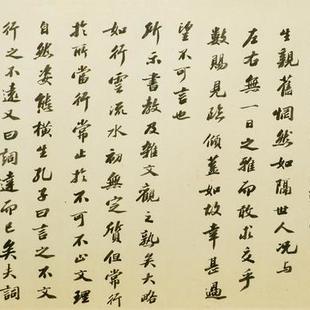 生親舊惘然如隔世人況与
左右無一日之雅而敢求交乎
數賜見臨傾蓋如故幸甚過
望不可言也
所示書教及雜文觀之熟矣大略
如行雲流水初無定質但常行
於所當行常止於不可不止文理
自然姿態橫生孔子曰言之不文
行之不遠又曰詞達而已矣夫詞